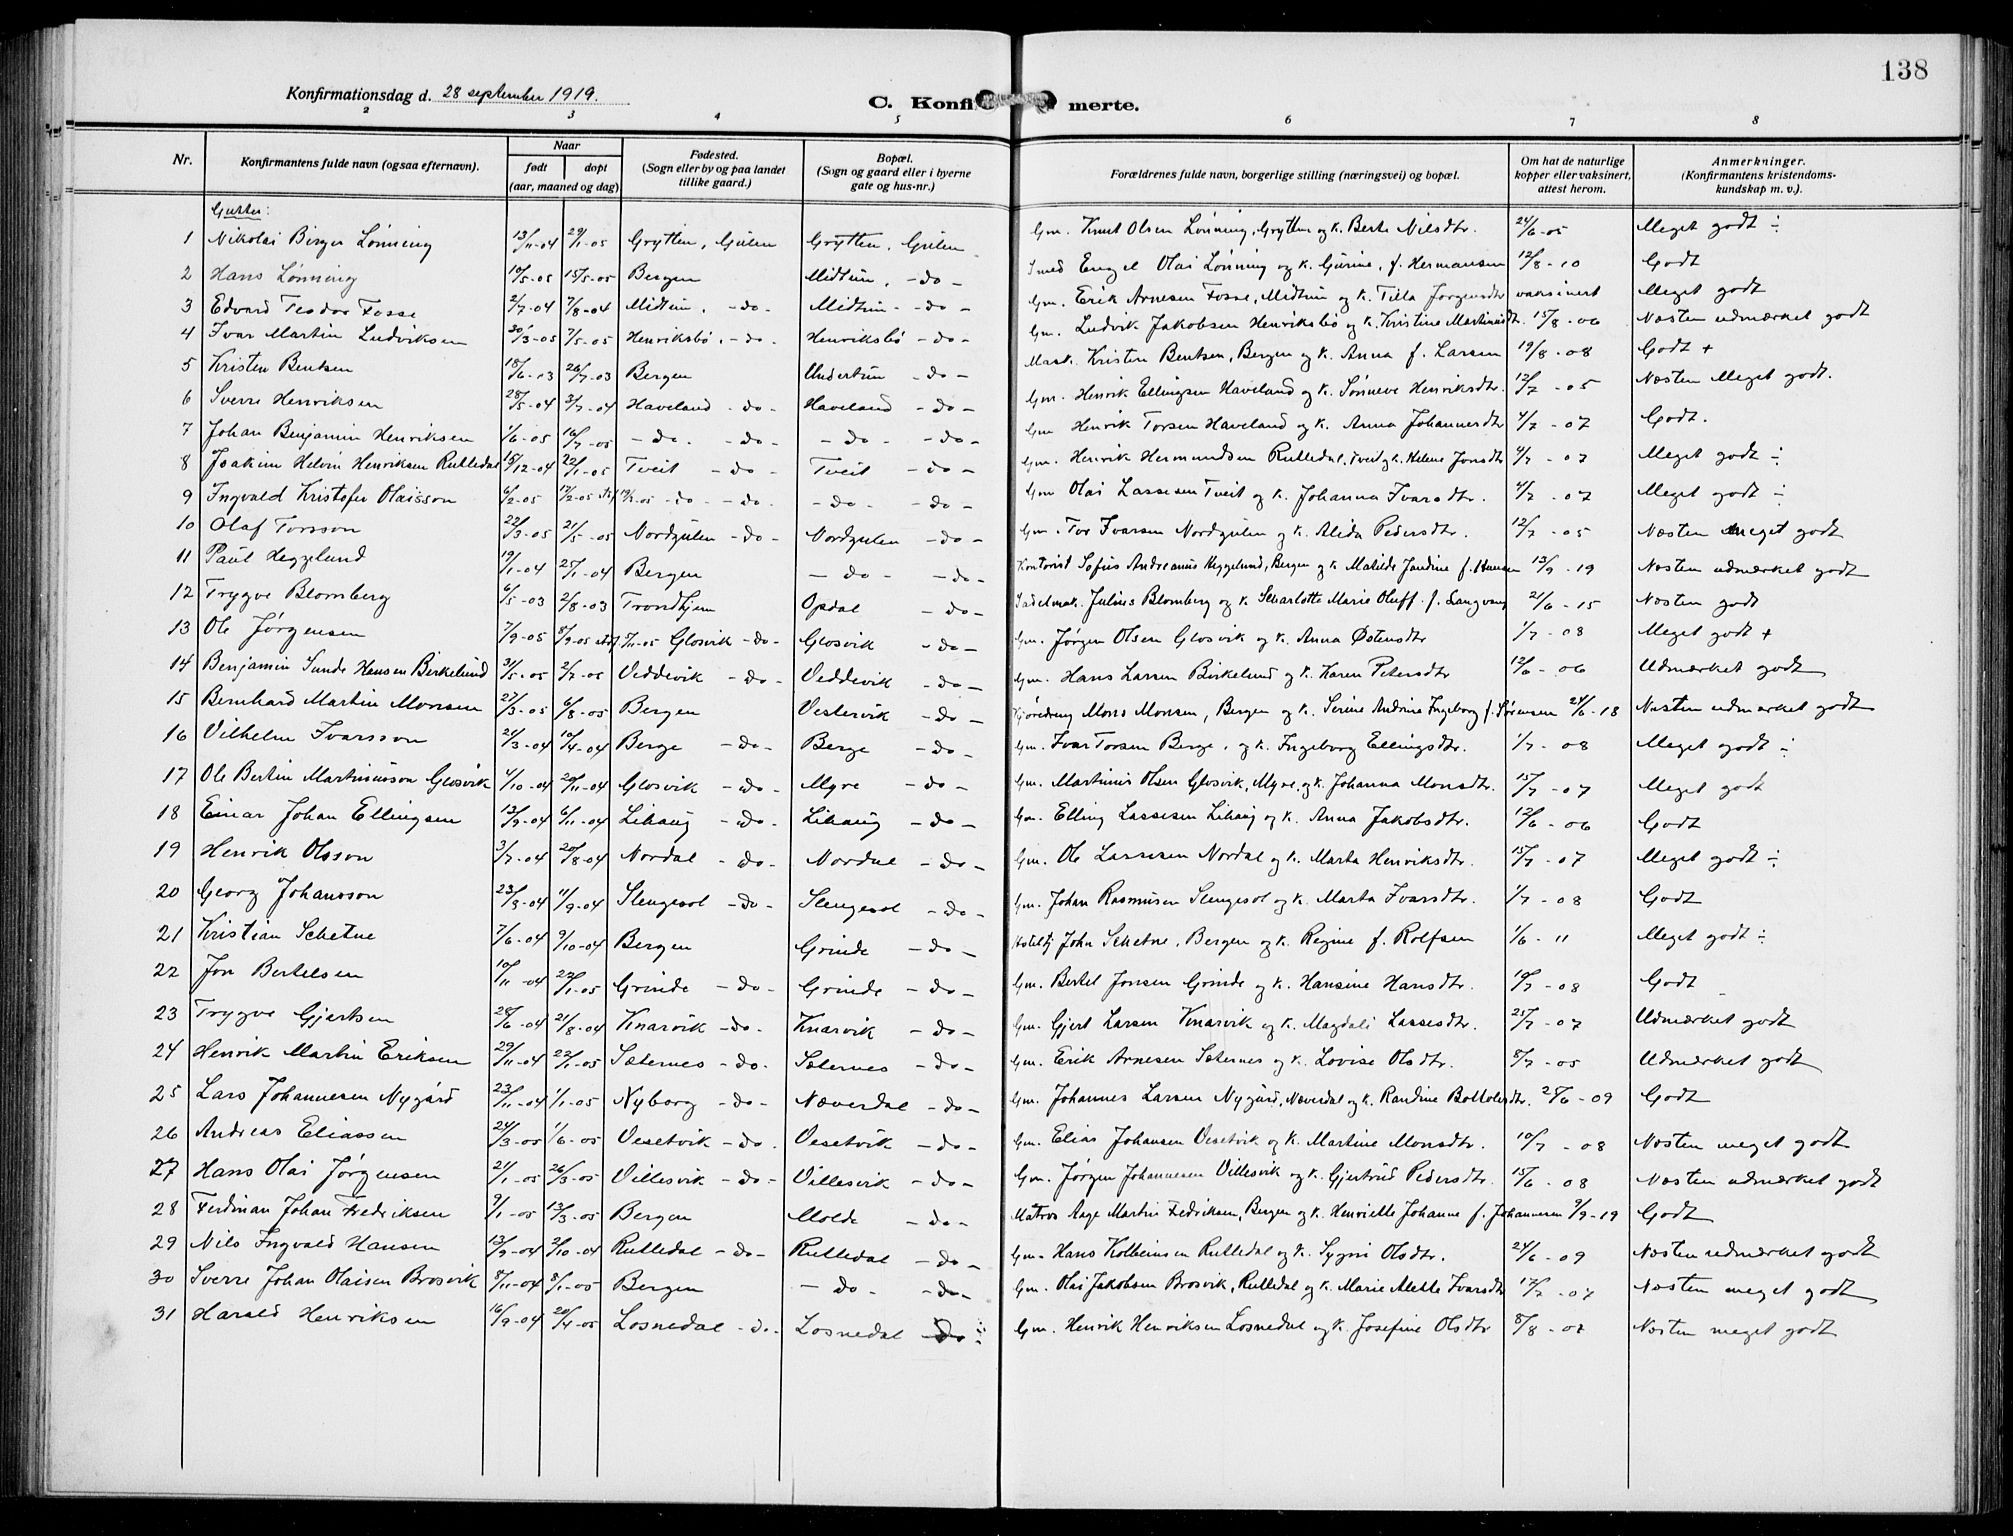 138
Konfirmationsdag d. 28 september 1919.
C. Konfirmerte.
2 3 4 5 6 7 8
Nr. Konfirmantens fulde navn (ogsaa efternavn). Naar født dopt (aar, maaned og dag) Fødested. (Sogn eller by og paa landet tillike gaard.) Bopæl. (Sogn og gaard eller i byerne gate og hus-nr.) Forældrenes fulde navn, borgerlige stilling (næringsvei) og bopæl. Om hat de naturlige kopper eller vaksinert, attest herom. Anmerkninger. (Konfirmantens kristendoms-kundskap m. v.).
Gutter:
1 Nikolai Birger Lønning 13/11-04 29/1-05 Grytten, Gulen Grytten, Gulen Gm. Knut Olsen Lønning, Grytten og k. Berte Nilsdtr. 24/6-05 Meget godt ÷
2 Hans Lønning 10/5-05 15/5-05 Bergen Midtun, -do- Smed Engel Olai Lønning og k. Gurine, f. Hermansen 12/8-10 Godt
3 Edvard Teodor Fosse 2/7-04 7/8-04 Midtun, -do- Midtun -do- Gm. Erik Arnesen Fosse, Midtun og k. Tilla Jørgensdtr vaksinert Meget godt
4 Ivar Martin Ludviksen 30/3-05 7/5-05 Henriksbø, -do- Henriksbø -do- Gm. Ludvik Jakobsen Henriksbø og k. Kristine Martinusdtr. 15/8-06 Næsten udmærket godt
5 Kristen Bentsen 18/6-03 26/7-03 Bergen Undertun -do- Mask. Kristen Bentsen, Bergen og k. Anna f. Larsen 19/8-08 Godt +
6 Sverre Henriksen 28/5-04 3/7-04 Haveland -do- Haveland -do- Gm. Henrik Ellingsen Haveland og k. Sønneve Henriksdtr. 12/7-05 Næsten Meget godt.
7 Johan Benjamin Henriksen 1/6-05 16/7-05 -do- -do- -do- -do- Gm Henrik Torsen Haveland og k. Anna Johannesdtr 4/7-07 Godt.
8 Joakim Helvin Henriksen Rutledal 15/12-04 22/1-05 Tveit -do- Tveit -do- Gm. Henrik Hermundsen Rutledal, Tveit og k. Helene Jonsdtr 4/7-07 Meget godt ÷
9 Ingvald Kristofer Olaisson 6/2-05 17/2-05 -do- -do- -do- -do- Gm Olai Lassesen Tveit og k. Johanna Ivarsdtr. 4/7-07 Meget godt ÷
10 Olaf Torsson 22/3-05 21/5-05 Nordgulen -do- Nordgulen -do- Gm. Tor Ivarsen Nordgulen og k. Alida Pedersdtr. 12/7-05 Næsten meget godt
11 Paul Heggelund 19/1-04 25/1-04 Bergen -do- -do- Kontorist Sofus Andreanus Heggelund, Bergen og k Matilde Jandine f. Hansen 13/9-19 Næsten udmærket godt
12 Trygve Blomberg 6/5-03 2/8-03 Trondhjem Opdal -do- Sadelmak. Julius Blomberg og k Scharlotte Marie Oluff. f. Langvang 21/6-15 Næsten godt
13 Ole Jørgensen 7/9-05 8/9-05 Glosvik -do- Glosvik -do- Gm. Jørgen Olsen Glosvik og k. Anna Østensdtr 1/7-08 Meget godt +
14 Benjamin Sunde Hansen Birkelund 31/5-05 2/7-05 Veddevik -do- Veddevik -do- Gm. Hans Larsen Birkelund og k. Karen Petersdtr 12/6-06 Udmærket godt
15 Bernhard Martin Monsen 27/3-05 6/8-05 Bergen Vestervik -do- Kjøredreng Mons Monsen, Bergen og k. Serine Andrine Ingeborg f. Sørensen 24/6-18 Næsten udmærket godt
16 Vilhelm Ivarsson 21/3-04 10/4-04 Berge -do- Berge -do- Gm. Ivar Torsen Berge, og k. Ingeborg Ellingsdtr. 1/7-08 Meget godt ÷
17 Ole Bertin Martinusson Glosvik 4/10-04 20/11-04 Glosvik -do- Myre -do- Gm. Martinus Olsen Glosvik, Myre, og k. Johanna Monsdtr. 15/7-07 Meget godt
18 Einar Johan Ellingsen 13/9-04 6/11-04 Lihaug -do- Lihaug -do- Gm. Elling Lassesen Lihaug og k. Anna Jakobsdtr. 12/6-06 Godt
19 Henrik Olsson 3/7-04 20/8-04 Nordal -do- Nordal -do- Gm. Ole Lassesen Nordal og k. Marta Henriksdtr. 15/7-07 Meget godt ÷
20 Georg Johansson 23/8-04 11/9-04 Slengesol -do- Slengesol -do- Gm. Johan Rasmusen Slengesol og k. Marta Ivarsdtr. 1/7-08 Godt
21 Kristian Schetne 7/6-04 9/10-04 Bergen Grinde -do- Hoteltj John Schetne, Bergen og k. Regine f. Rolfsen 1/6-11 Meget godt ÷
22 Jon Bertelsen 10/11-04 22/1-05 Grinde -do- Grinde -do- Gm. Bertel Jonsen Grinde og k. Hansine Hansdtr. 19/7-08 Godt
23 Trygve Gjertsen 28/6-04 21/8-04 Knarvik -do- Knarvik -do- Gm. Gjert Larsen Knarvik og k. Magdali Lassesdtr. 25/7-07 Udmærket godt
24 Henrik Martin Eriksen 29/11-04 22/1-05 Sæternes -do- Sæternes -do- Gm. Erik Arnesen Sæternes og k. Lovise Olsdtr. 8/7-05 Udmærket godt
25 Lars Johannesen Nygård 23/11-04 1/1-05 Nyborg -do- Næverdal -do- Gm. Johannes Larsen Nygård, Næverdal og k. Randine Bottolvsdtr. 25/6-09 Godt
26 Andreas Eliassen 24/3-05 1/6-05 Vesetvik -do- Vesetvik -do- Gm. Elias Johansen Vesetvik og k. Martine Monsdtr. 10/7-08 Næsten meget godt
27 Hans Olai Jørgensen 21/1-05 26/3-05 Villesvik -do- Villesvik -do- Gm. Jørgen Johannesen Villesvik og k. Gjertrud Pedersdtr. 15/6-08 Næsten udmærket godt
28 Ferdinan Johan Fredriksen 9/1-05 12/3-05 Bergen Molde -do- Matros Aage Martin Fedriksen, Bergen og k. Henriette Johanne f. Johannesen 9/9-19 Godt
29 Nils Ingvald Hansen 13/9-04 2/10-04 Rutledal -do- Rutledal -do- Gm. Hans Kolbeinsen Rutledal og k. Sygni Olsdtr. 24/6-09 Næsten udmærket godt
30 Sverre Johan Olaisen Brosvik 8/11-04 8/1-05 Bergen -do- -do- Gm. Olai Jakobsen Brosvik, Rutledal og k. Marie Alette Ivarsdtr 17/7-07 Næsten meget godt
31 Harald Henriksen 16/9-04 20/4-05 Losnedal -do- Losnedal do Gm. Henrik Henriksen Losnedal og k. Josefine Olsdtr 8/8-07 Næsten meget godt